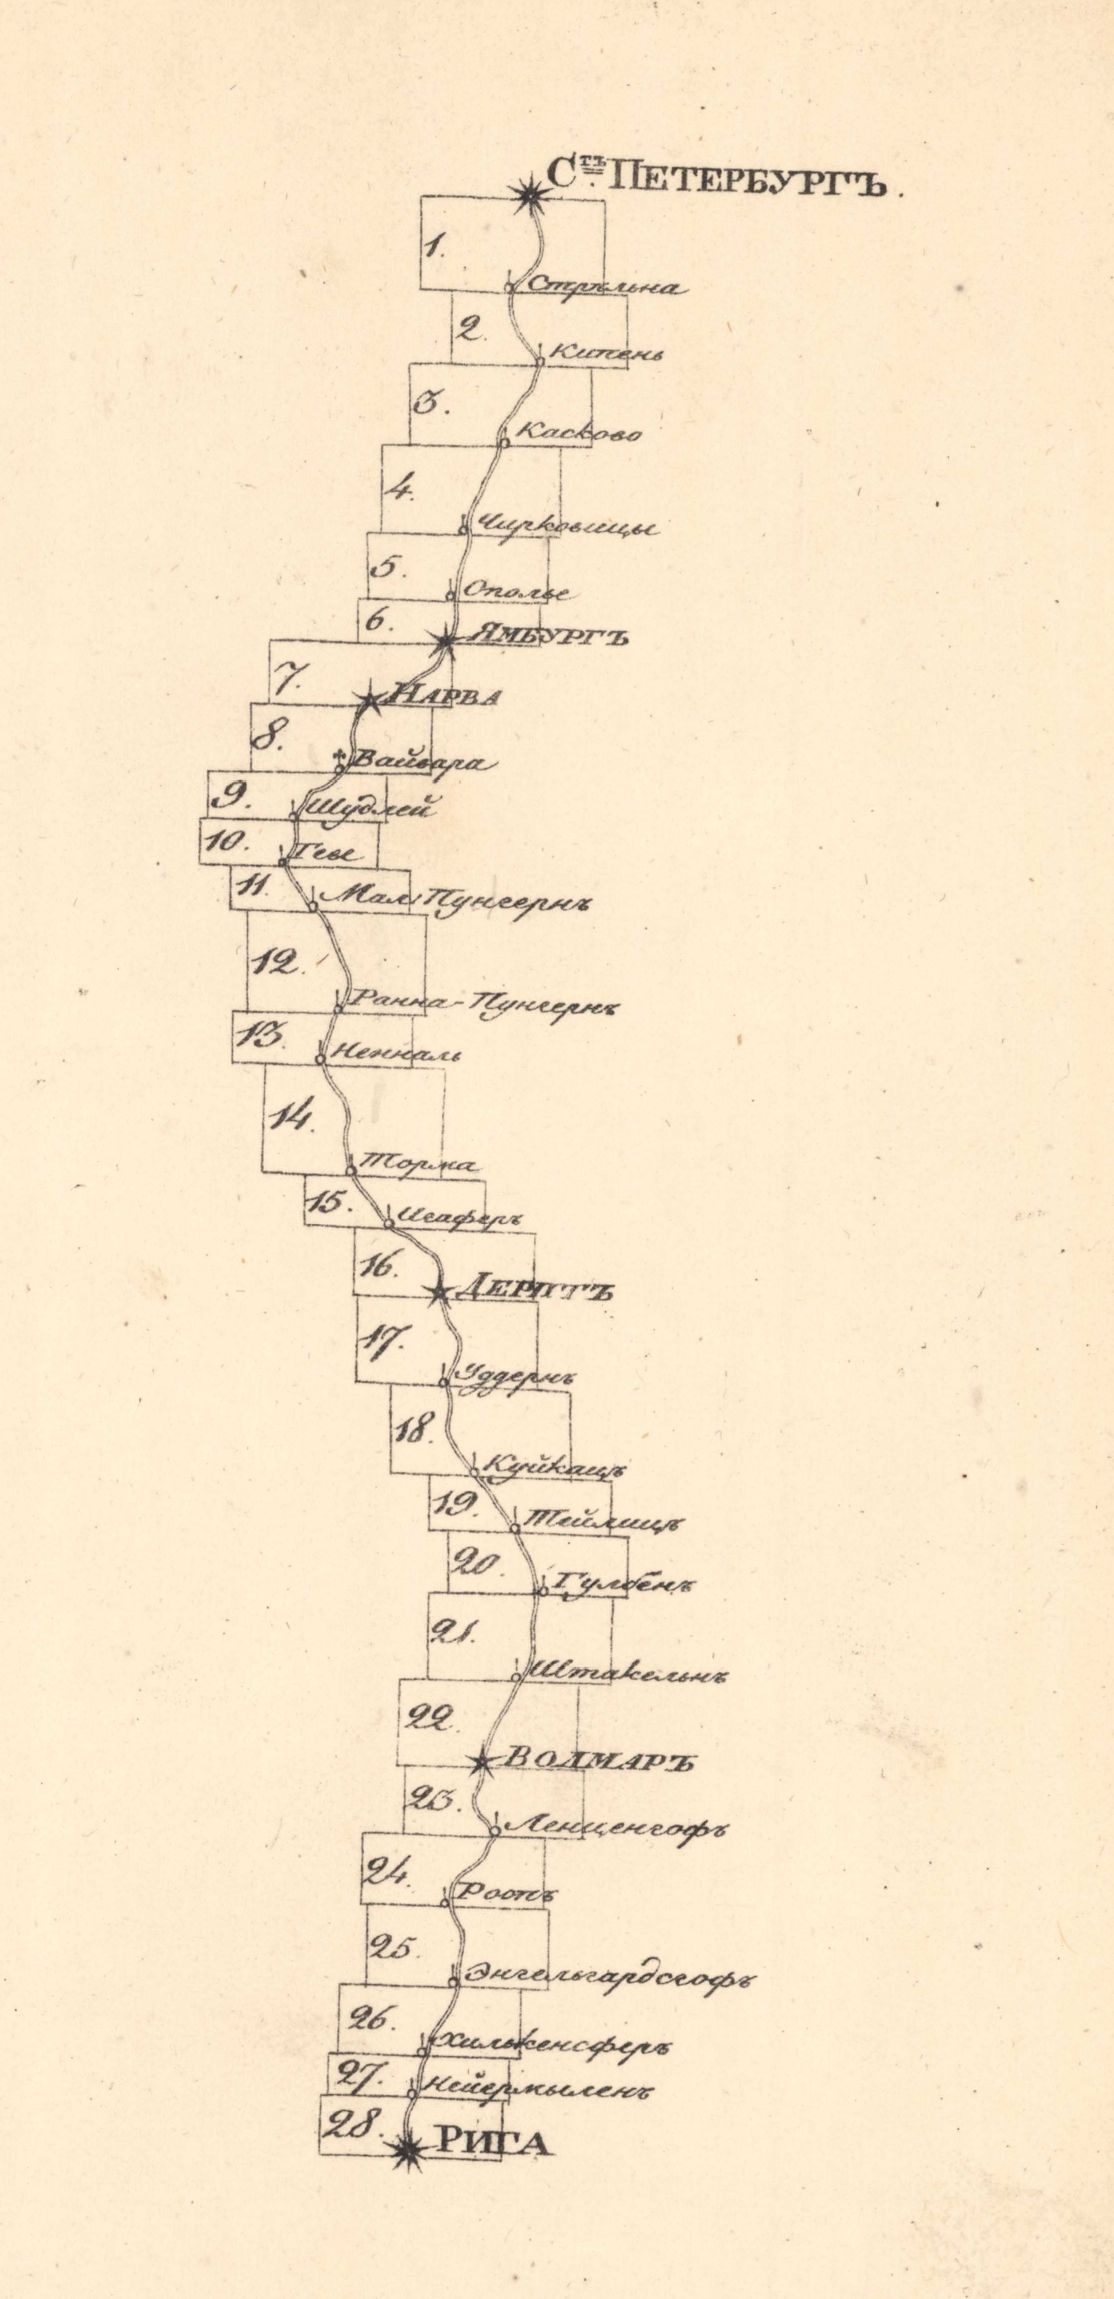 Стъ. ПЕТЕРБУРГЪ.
1.
Стрѣльна
2.
Кипень
3.
Касково
4.
Чирковицы
5.
Ополье
6.
ЯМБУРГЪ
7.
НАРВА
8.
Вайвара
9.
Шудлей
10.
Геве
11.
Мал: Пунгернъ
12.
Ранна-Пунгернъ
13.
Ненналь
14.
Торма
15.
Игаферъ
16.
ДЕРПТЪ
17.
Уддернъ
18.
Куйкацъ
19.
Тейлицъ
20.
Гулбенъ
21.
Штакельнъ
22.
ВОЛМАРЪ
23.
Ленценгофъ
24.
Роопъ
25.
Энгельгардсгофъ
26.
Хилькенсферъ
27.
Нейермыленъ
28.
РИГА